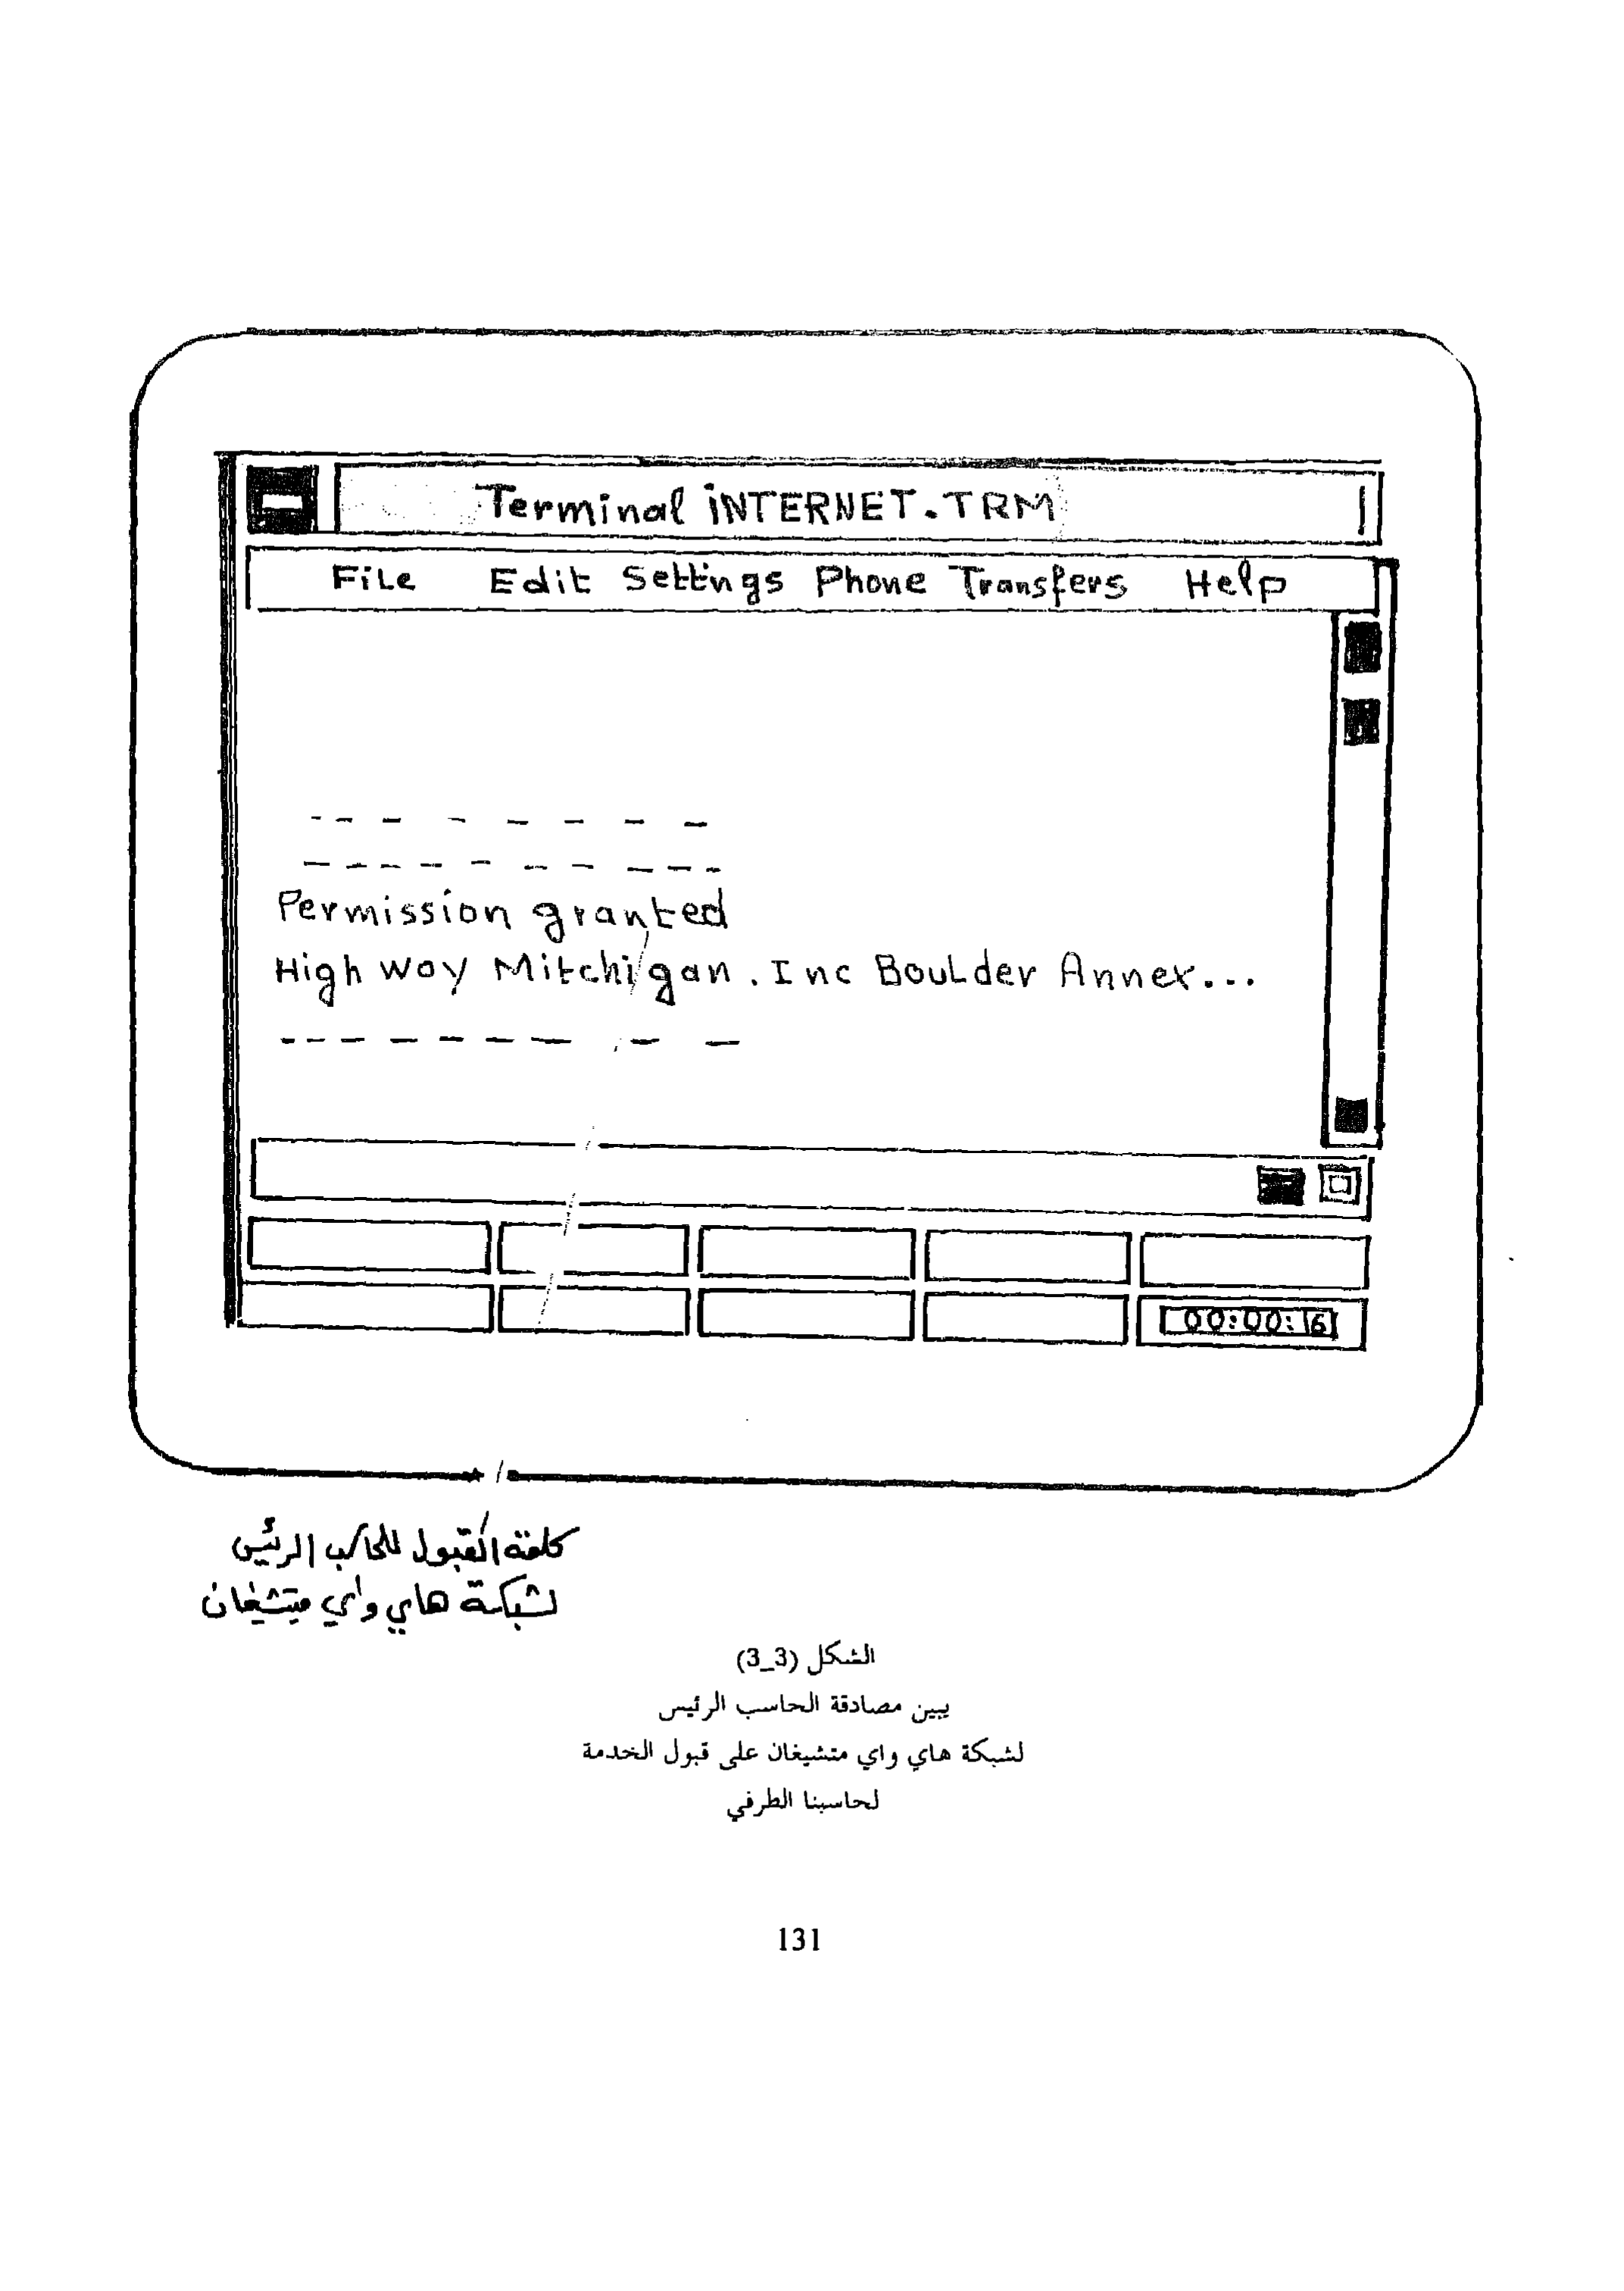 Terminal iNTERNET.TRM
File Edit Settings Phone Transfers Help
Permission granted
High way Mitchigan. Inc Boulder Annex...
00:00:16
كلمة القبول للحاسب الرئيس
لشبكة هاي واي ميتشيغان
الشكل (3_3)
يبين مصادقة الحاسب الرئيس
لشبكة هاي واي متشيغان على قبول الخدمة
لحاسبنا الطرفي
131